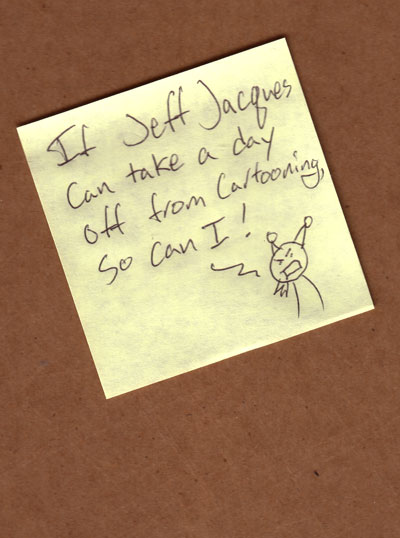 If Jeff Jacques
can take a day
off from Cartooning,
so can I!